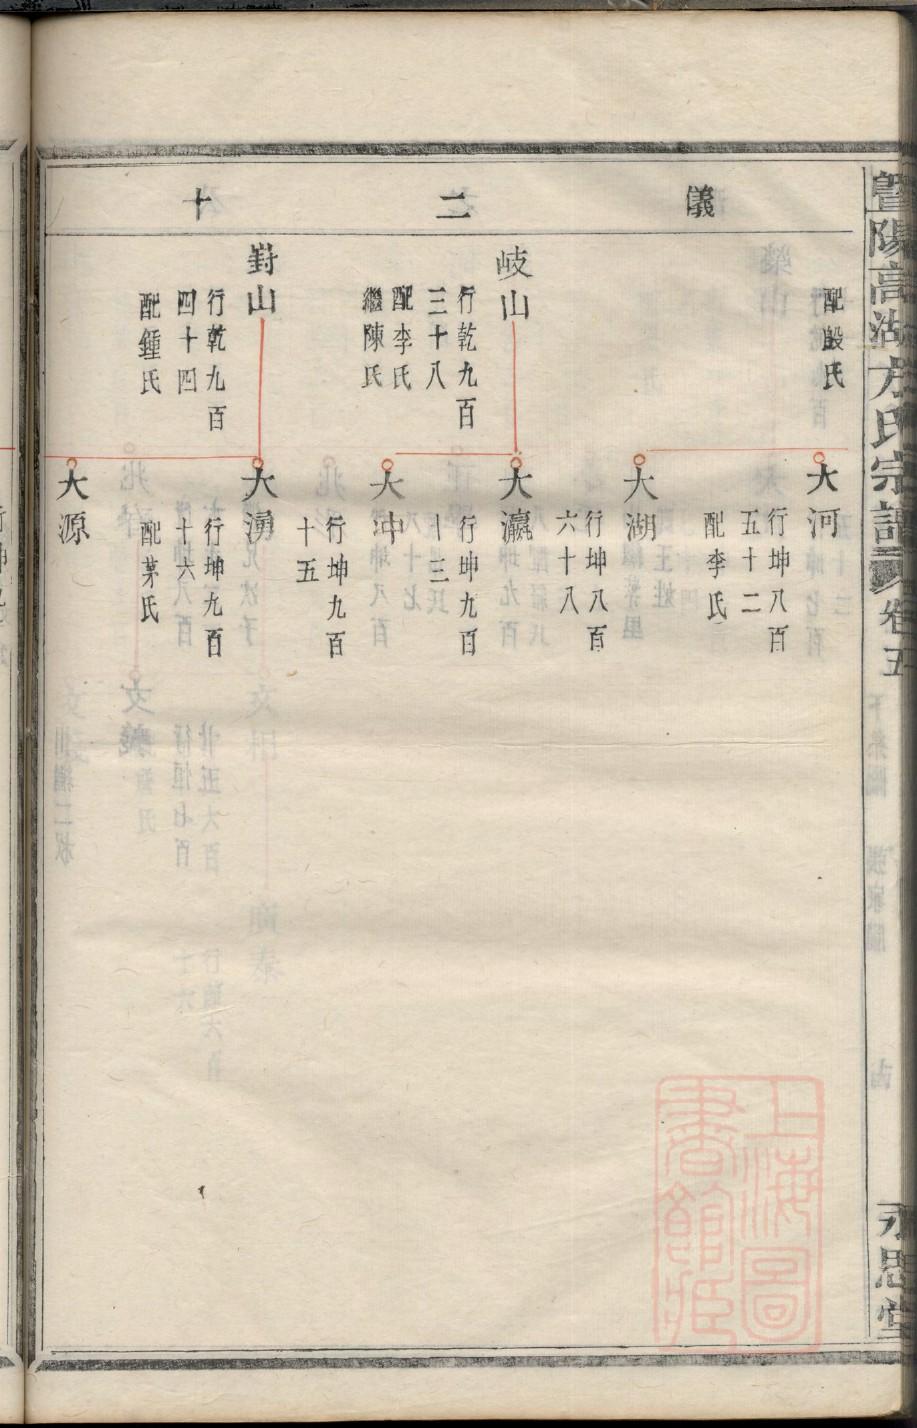 暨陽高湖方氏宗譜
卷五
永思堂
儀
二
十
配殷氏
岐山
行乾九百
三十八
配李氏
繼陳氏
對山
行乾九百
四十四
配鍾氏
大河
行坤八百
五十二
配李氏
大湖
行坤八百
六十八
大瀛
行坤九百
十三
大冲
行坤九百
十五
大湧
行坤九百
十六
配茅氏
大源
上海圖
書館藏